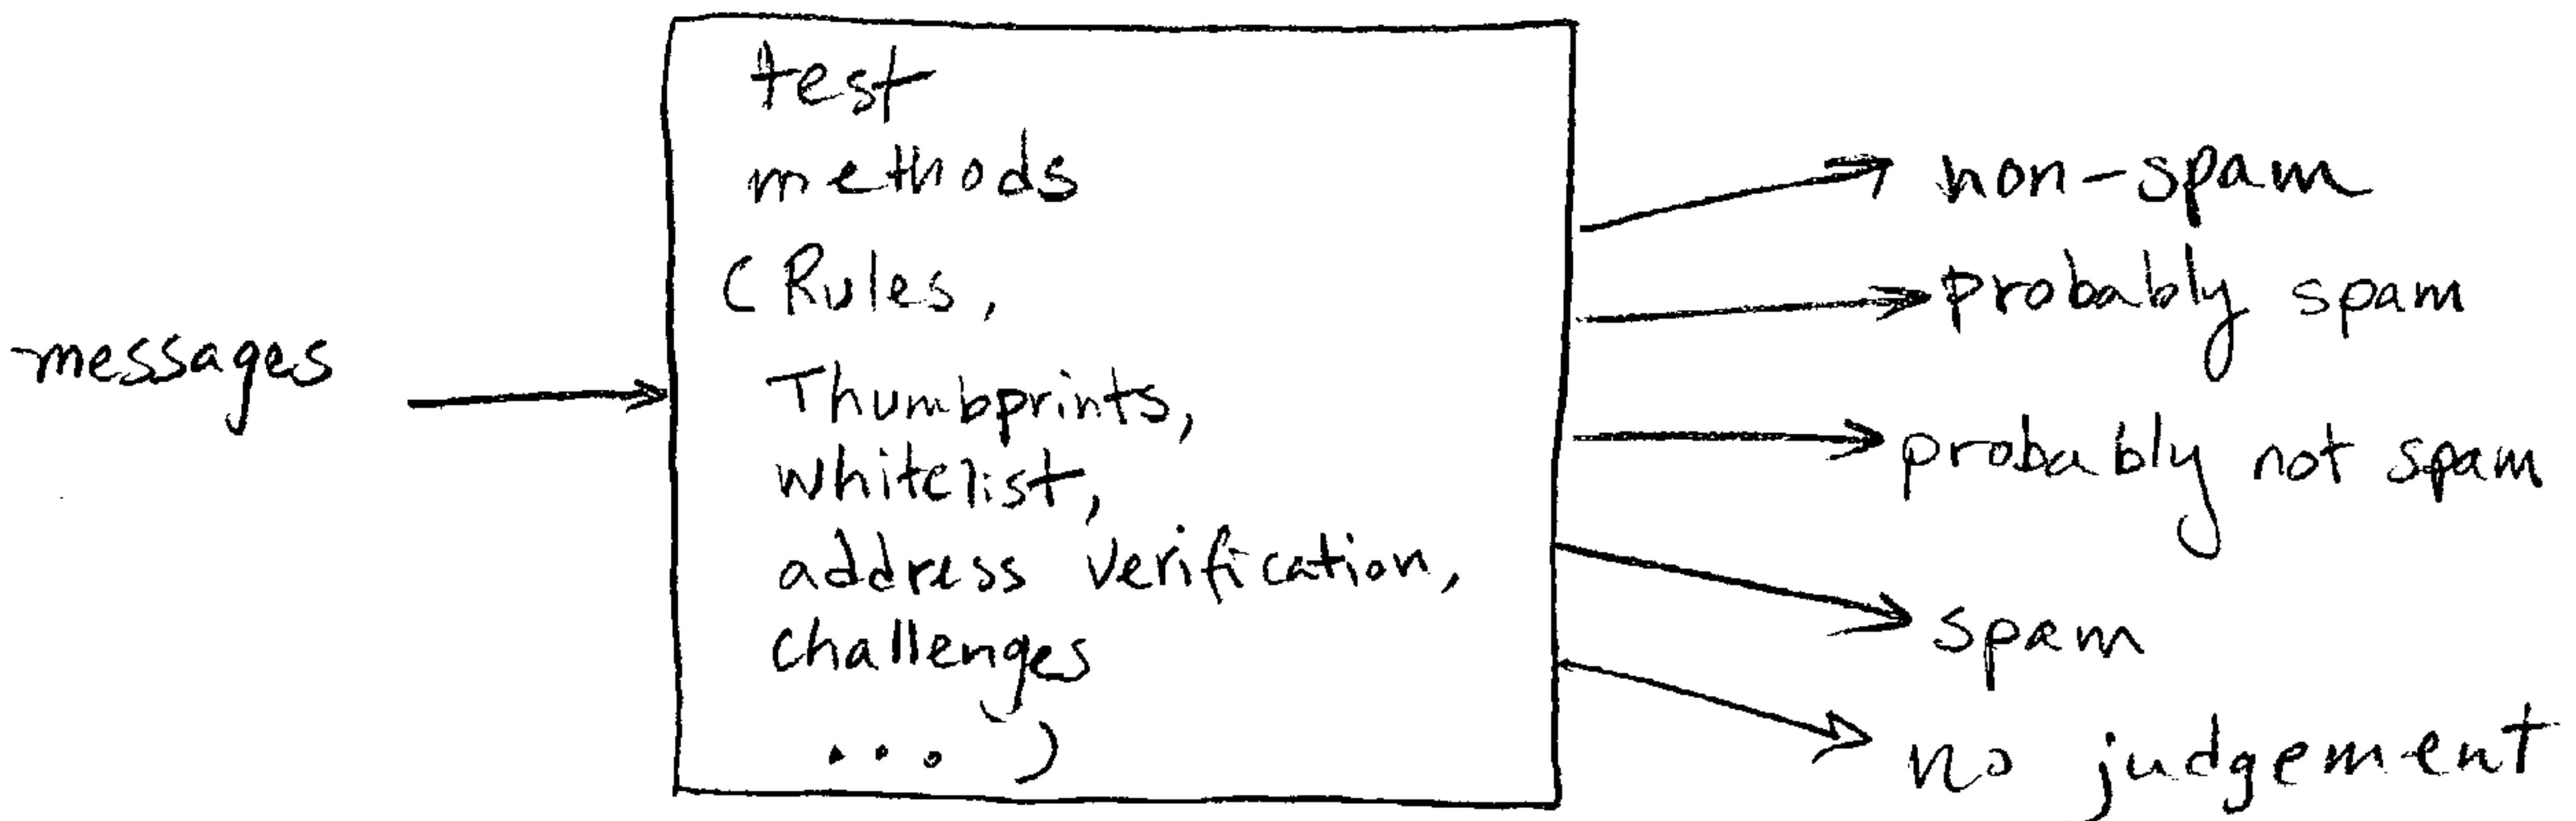 messages
test
methods
(Rules,
Thumbprints,
whitelist,
address verification,
challenges
...)
non-spam
probably spam
probably not spam
spam
no judgement